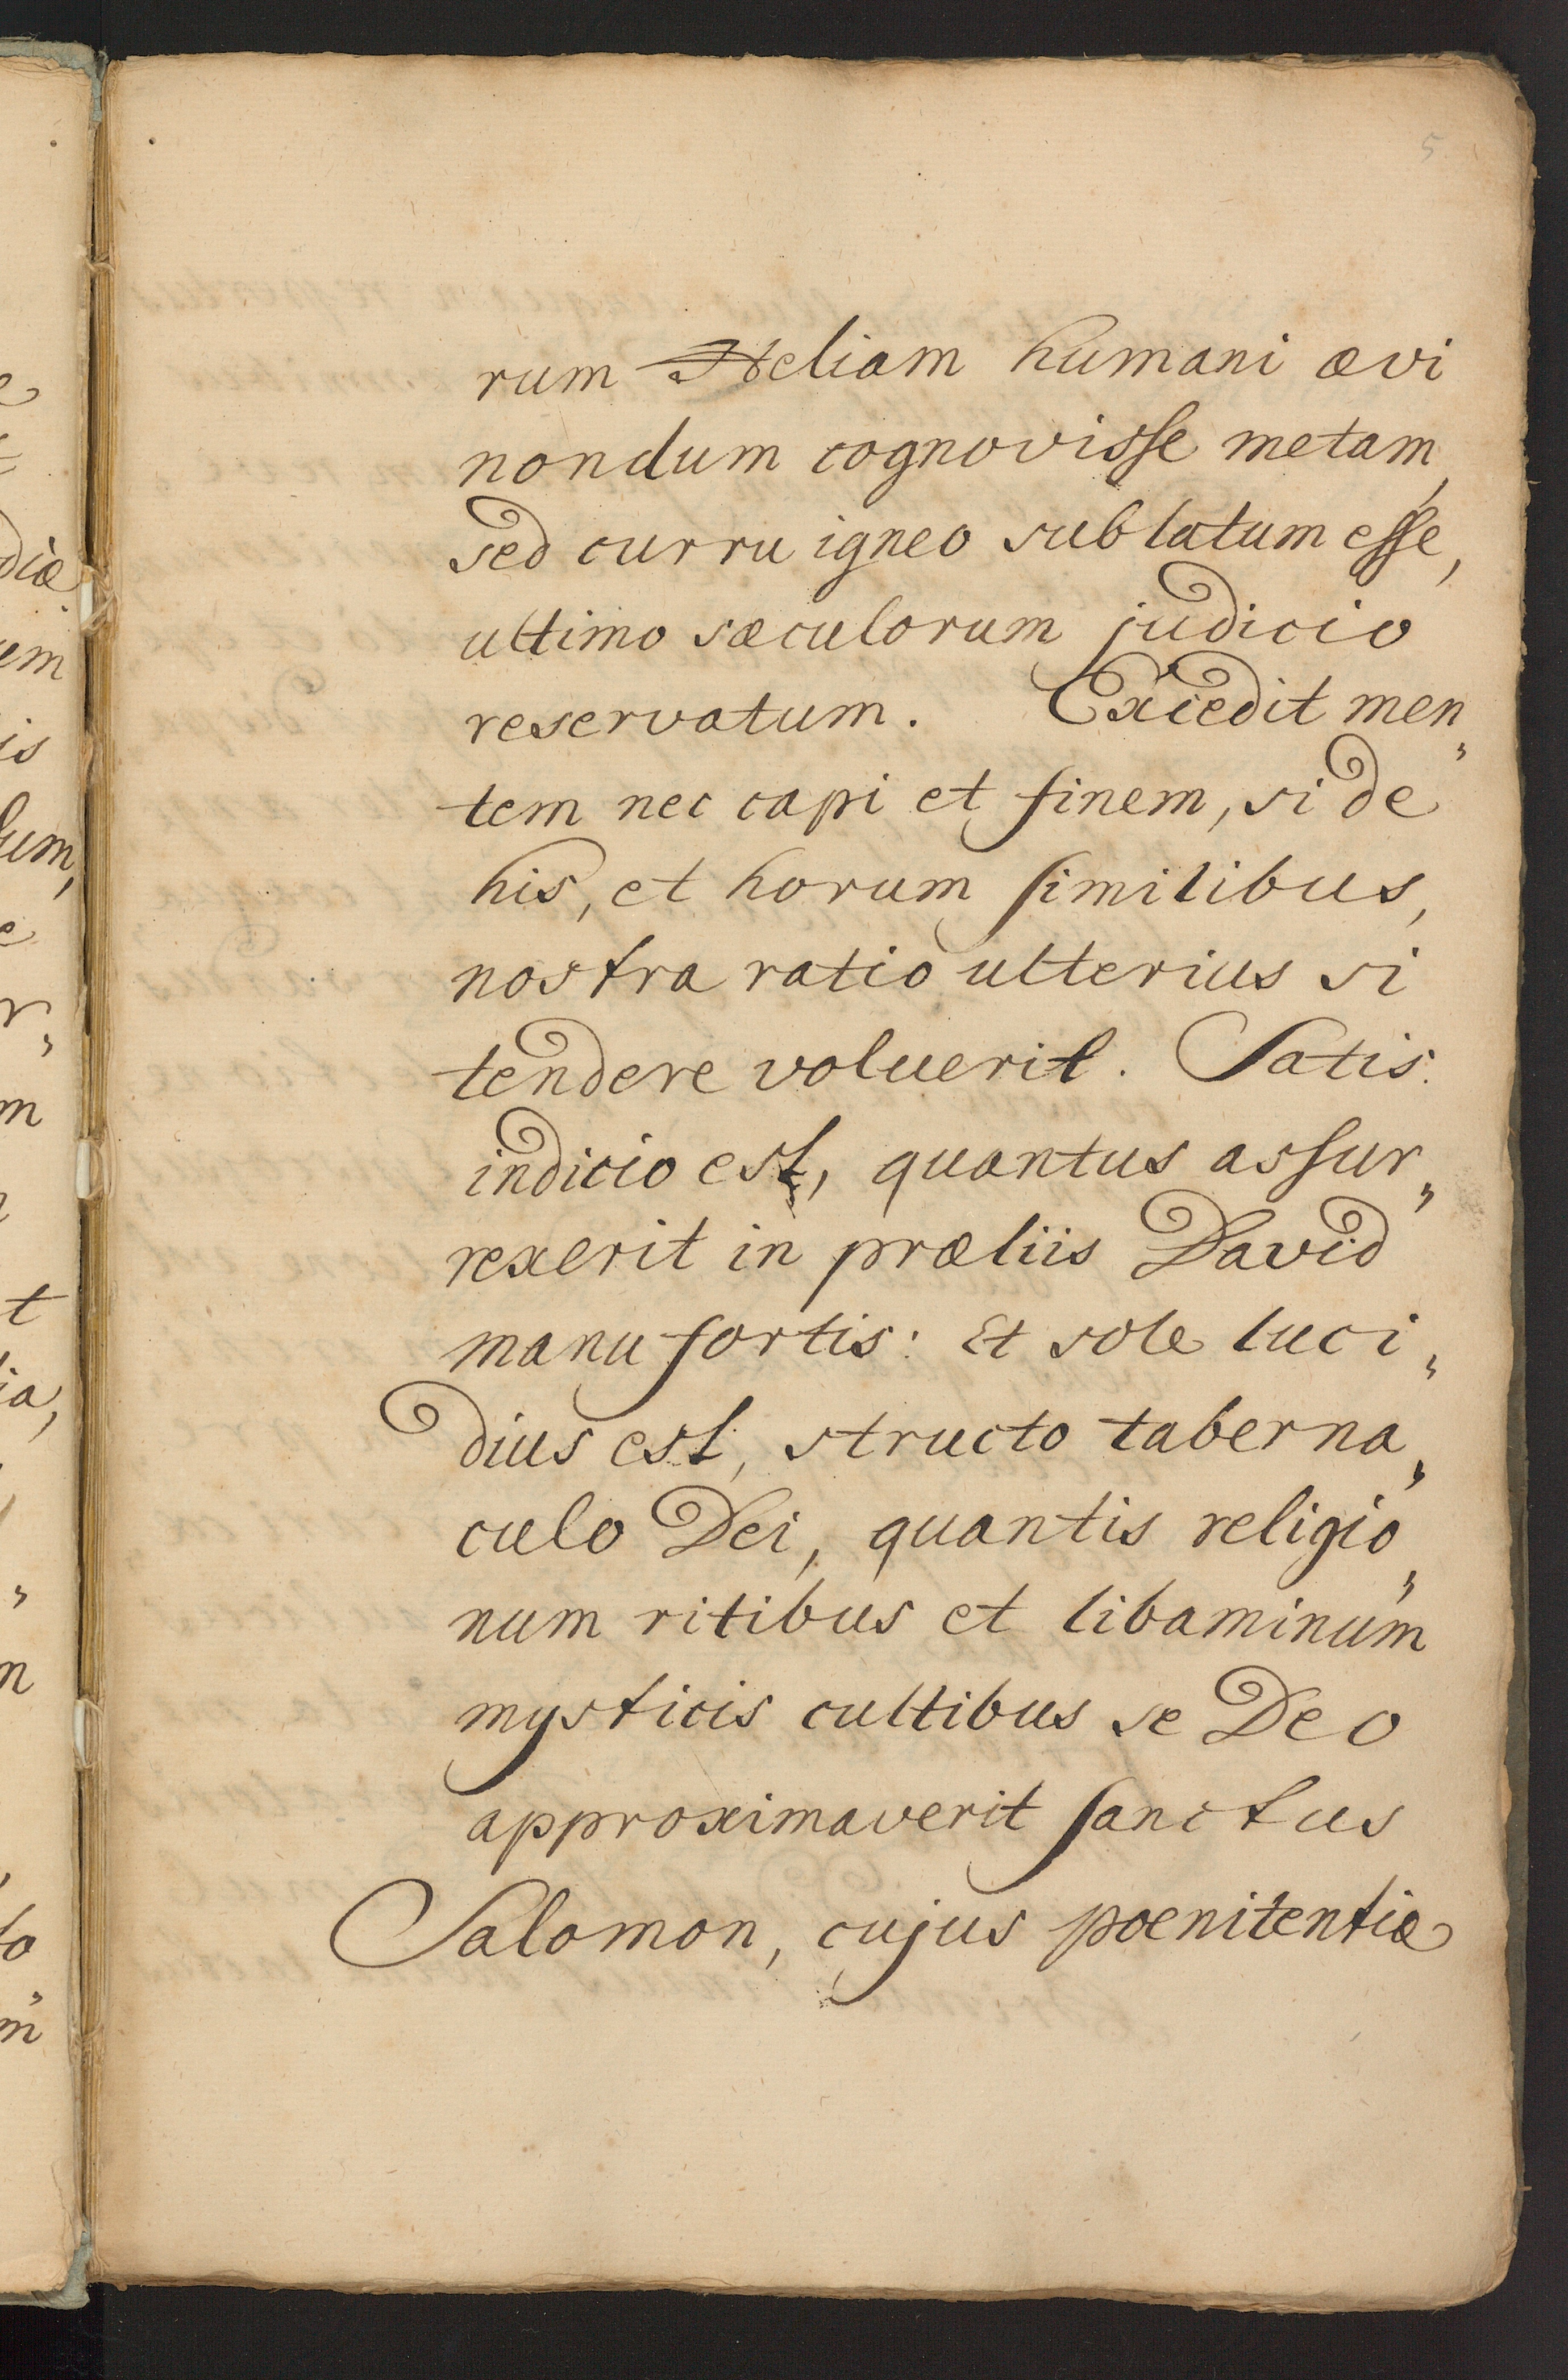 5
rum Heliam humani ævi
nondum cognovisse metam,
sed curru igneo sublatum esse,
ultimo sæculorum judicio
reservatum. Excedit men„
tem nec capi et finem, si de
his, et horum similibus,
nostra ratio ulterius si
tendere voluerit. Satis
indicio est, quantus assur„
rexerit in præliis David
manu fortis: Et sole luci„
dius est, structo taberna„
culo Dei, quantis religio„
num ritibus et libaminum
mysticis cultibus se Deo
approximaverit sanctus
Salomon, cujus poenitentiæ